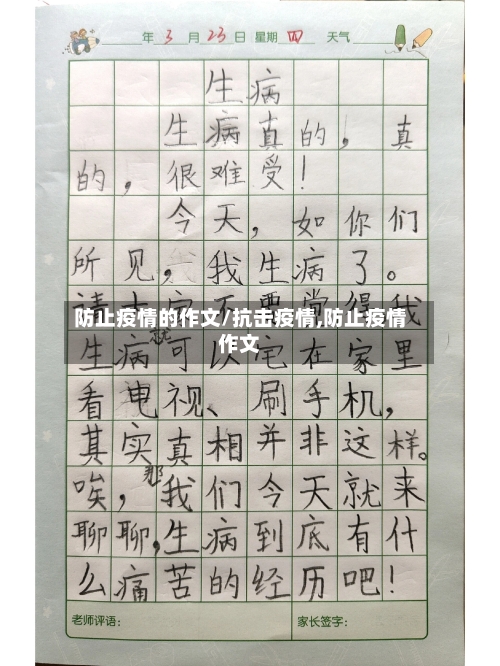 年 3 月 23 日 星期 四 天气
生病
生病真的，真
的，很难受！
今天，如你们
所见，我生病了。
请大家不要觉得我
防止疫情的作文/抗击疫情,防止疫情
作文
生病就可以宅在家里
看电视、刷手机，
其实真相并非这样。
唉，那我们今天就来
聊聊，生病到底有什
么痛苦的经历吧！
老师评语： 家长签字：